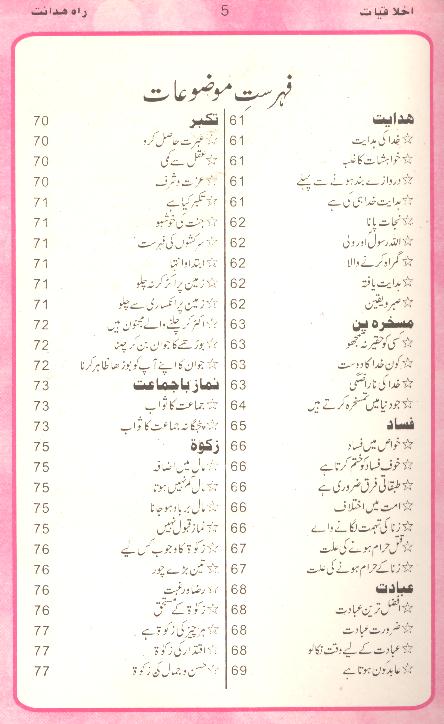 اخلاقیات
5
راہ ھدائت
فہرستِ موضوعات
ھدایت 61
☆خدا کی ہدایت 61
☆خواہشات کا غلبہ 61
☆دروازے بند ہونے سے پہلے 61
☆ہدایت خدا ہی کی ہے 61
☆نجات پانا 62
☆اللہ رسول اور ولی 62
☆گمراہ کرنے والا 62
☆ہدایت یافتہ 62
☆صبر و یقین 62
مسخرہ پن 63
☆کسی کو حقیر نہ سمجھو 63
☆کون خدا کا دوست 63
☆خدا کی ناراضگی 63
☆جو دنیا میں تمسخرہ کرتے ہیں 64
فساد 65
☆خواص میں فساد 66
☆خوف فساد کو ختم کرتا ہے 66
☆طبقاتی فرق ضروری ہے 66
☆امت میں اختلاف 66
☆زنا کی تہمت لگانے والے 66
☆قتل حرام ہونے کی علت 67
☆زنا کے حرام ہونے کی علت 67
عبادت 68
☆افضل ترین عبادت 68
☆ضرورت عبادت 68
☆عبادت کے لیے وقت نکالو 68
☆عابد کون ہوتا ہے 69
تکبر 70
☆عبرت حاصل کرو 70
☆عقل سے کمی 70
☆عزت و شرف 70
☆تکبر کیا ہے 71
☆جنت کی خوشبو 71
☆سرکشوں کی فہرست 71
☆ابتدا و انتہا 71
☆زمین پر اکڑ کر نہ چلو 71
☆زمین پر انکساری سے چلو 71
☆اکڑ کر چلنے والے مجنون ہیں 72
☆بوڑھے کا جوان بن کر چلنا 72
☆جوان کا اپنے آپ کو بوڑھا ظاہر کرنا 72
نماز باجماعت 73
☆جماعت کا ثواب 73
☆پنجگانہ جماعت کا ثواب 73
زکوۃ 75
☆مال میں اضافہ 75
☆مال کم نہیں ہوتا 75
☆مال برباد ہو جانا 75
☆نماز قبول نہیں 75
☆زکوۃ کا وجوب کس لیے 76
☆تین بڑے چور 76
☆رضا و رغبت 76
☆زکوۃ کے مستحق 76
☆ہر چیز کی زکوۃ ہے 77
☆اقتدار کی زکوۃ 77
☆حسن و جمال کی زکوۃ 77